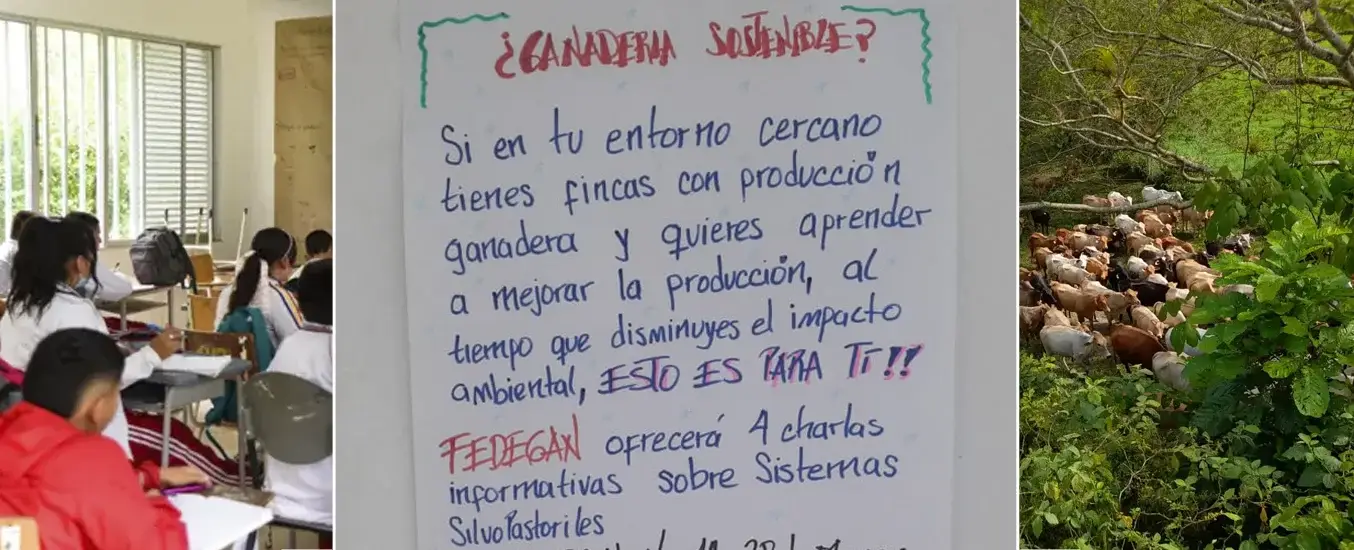 ¿GANADERIA SOSTENIBLE?
Si en tu entorno cercano
tienes fincas con producción
ganadera y quieres aprender
a mejorar la producción, al
tiempo que disminuyes el impacto
ambiental, ESTO ES PARA TI!!
FEDEGAN ofrecerá 4 charlas
informativas sobre Sistemas
SilvoPastoriles